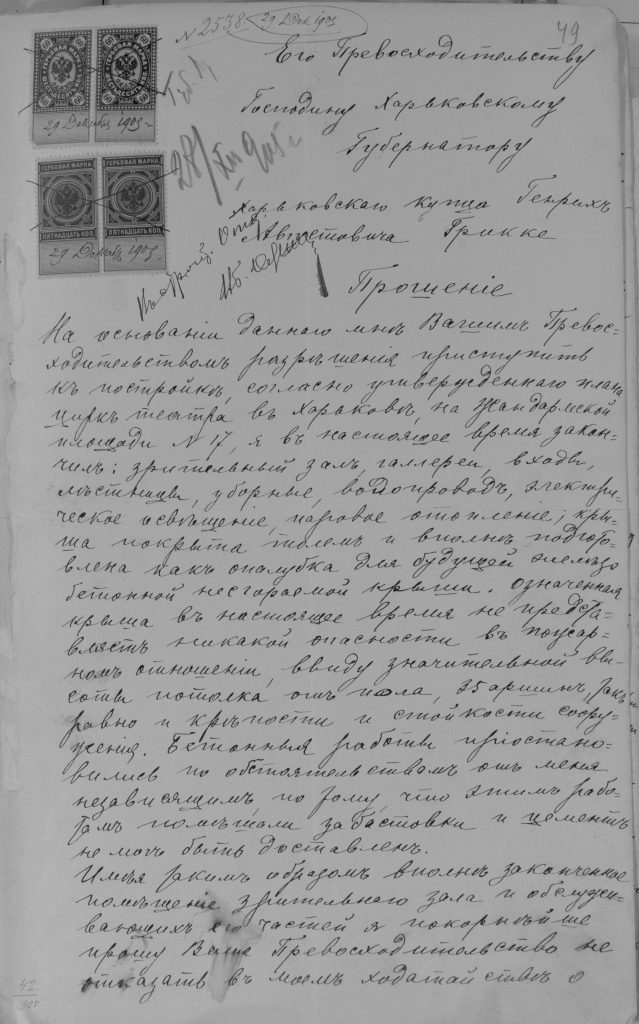 N 2538. 29 Дек. 1905
49
Его Превосходительству
Господину Харьковскому
Губернатору
28/XII 905 г
Харьковскаго купца Генрихъ
Августовича Грикке
Прошеніе
ГЕРБОВАЯ МАРКА
60 60 60 60
29 Декабря 1905
ГЕРБОВАЯ МАРКА. ГЕРБОВАЯ МАРКА.
ПЯТНАДЦАТЬ КОП. ПЯТНАДЦАТЬ КОП.
29 Декабр 1905
На основаніи даннаго мнѣ Вашимъ Превос-
ходительствомъ разрѣшенія приступить
къ постройкѣ, согласно утвержденнаго плана
циркъ театра въ Харьковѣ, на Жандармской
площади N 17, я въ настоящее время закон-
чилъ: зрительный залъ, галлереи, входы,
лѣстницы, уборные, водопроводъ, электри-
ческое освѣщеніе, паровое отопленіе; кры-
ша покрыта толемъ и вполнѣ подгото-
влена какъ опалубка для будущей желѣзо
бетонной несгораемой крыши. Означенная
крыша въ настоящее время не предста-
вляетъ никакой опасности въ пожар-
номъ отношеніи, ввиду значительной вы-
соты потолка отъ пола, 25 аршинъ, такъ
равно и крѣпости и стойкости соору-
женія. Бетонныя работы пріостано-
вились по обстоятельствомъ отъ меня
независящимъ, по тому, что этимъ рабо-
тамъ помѣшали забастовки и цементъ
не могъ быть доставленъ.
Имѣя такимъ образомъ вполнѣ законченное
помѣщеніе зрительнаго зала и обслужи-
вающихъ его частей я покорнѣйше
прошу Ваше Превосходительство не
отказать въ моемъ ходатайствѣ о
42
905